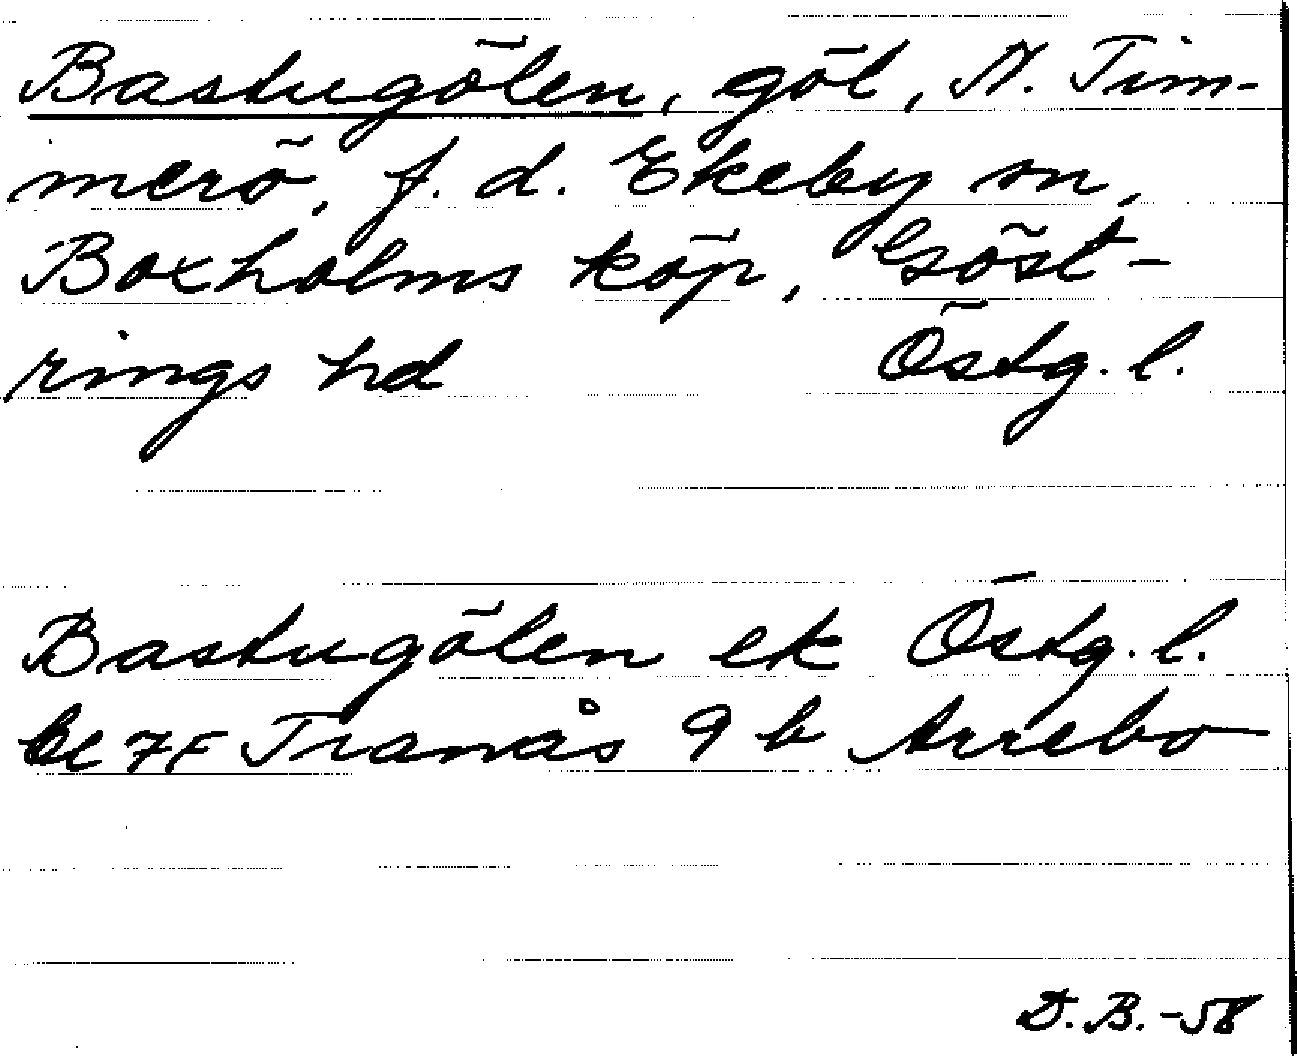 Bastugölen, göl, N. Tim-
merö, f. d. Ekeby sn,
Boxholms köp, Göst-
rings hd Östg. l.
Bastugölen ek Östg. l.
bl 7F Tranås 9 b Arrebo
D. B. -58